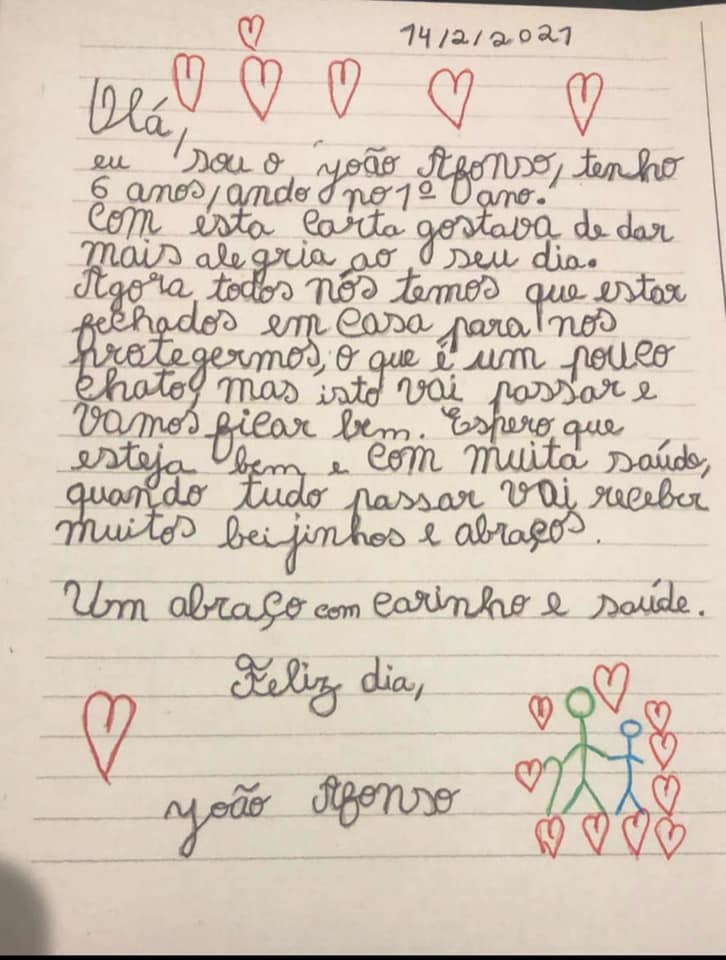 14/2/2021
Olá,
eu sou o João Afonso, tenho
6 anos, ando no 1º ano.
Com esta carta gostava de dar
mais alegria ao seu dia.
Agora todos nós temos que estar
fechados em casa para nos
protegermos, o que é um pouco
chato, mas isto vai passar e
vamos ficar bem. Espero que
esteja bem e com muita saúde,
quando tudo passar vai receber
muitos beijinhos e abraços.
Um abraço com carinho e saúde.
Feliz dia,
João Afonso